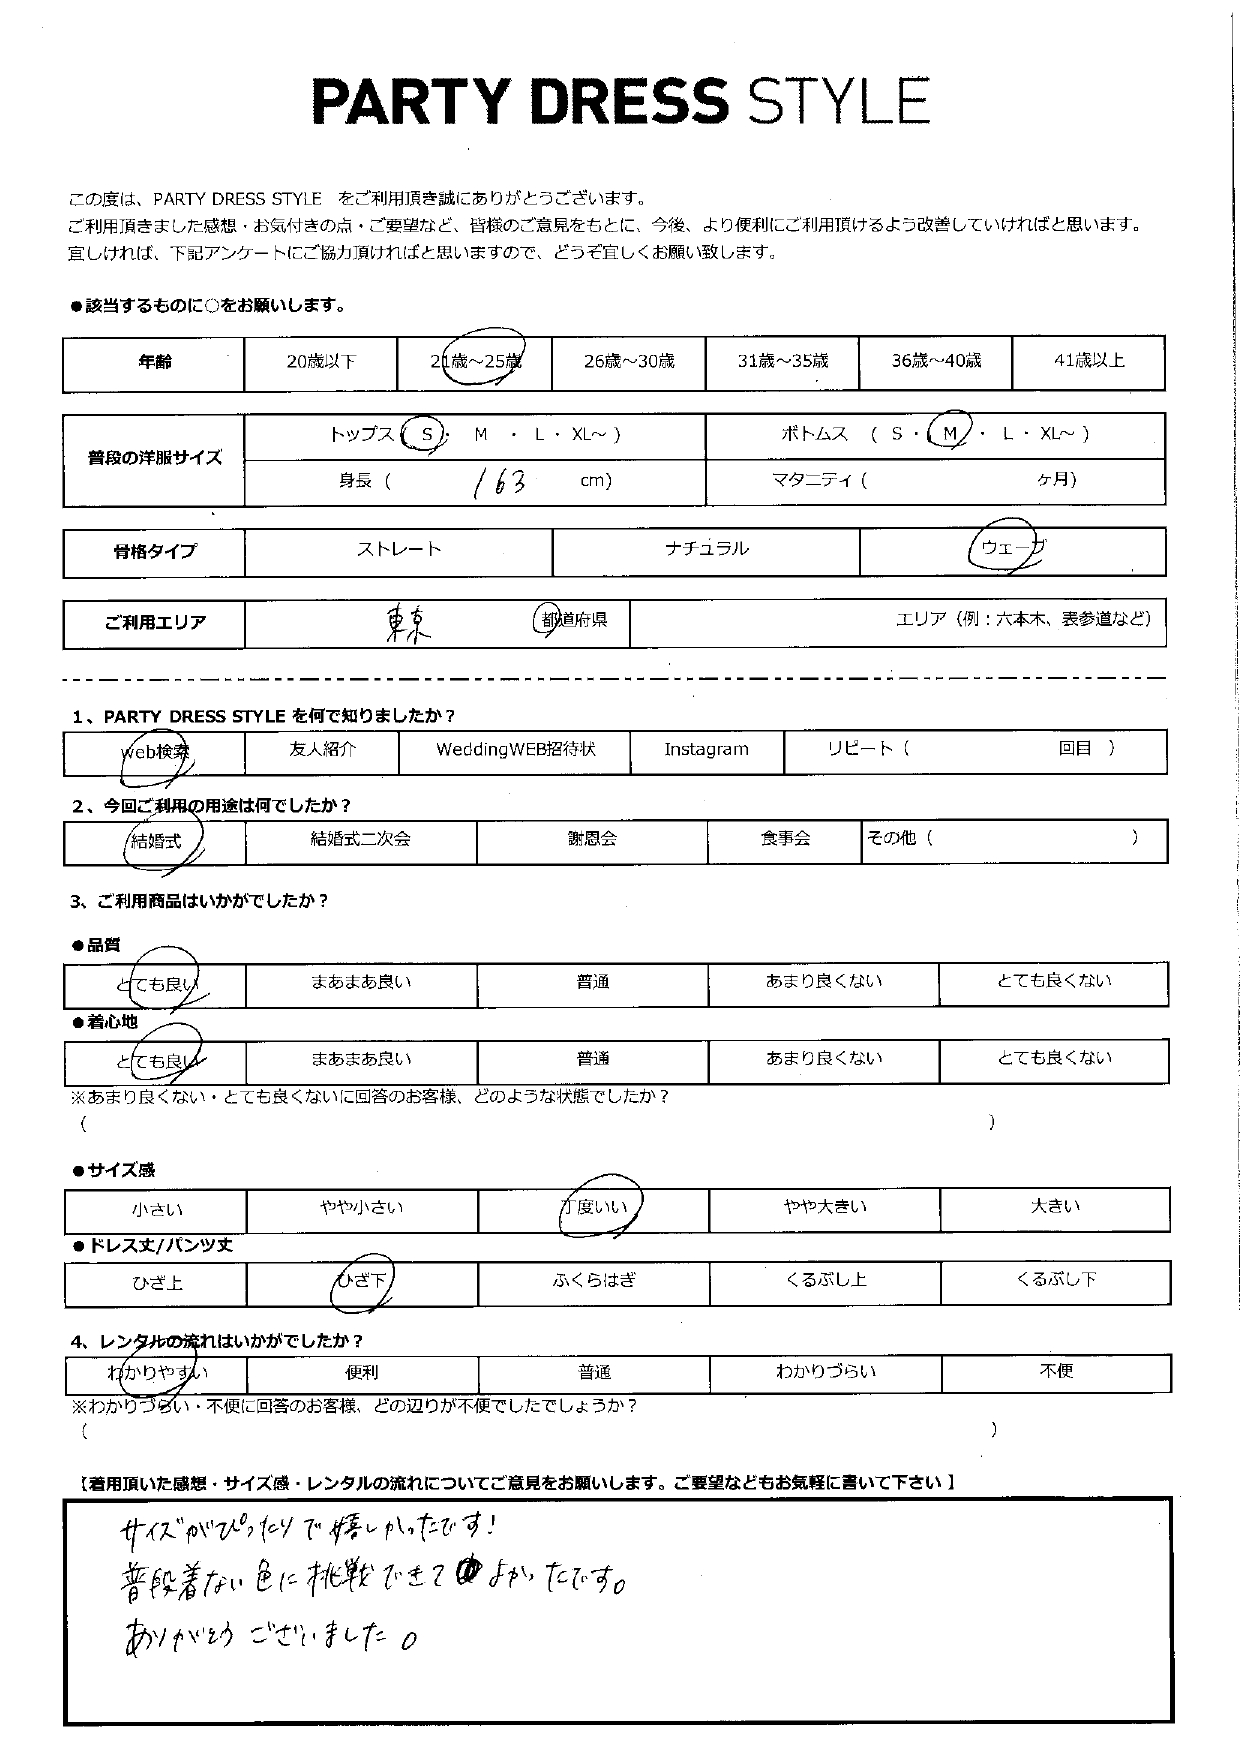 PARTY DRESS STYLE
この度は、PARTY DRESS STYLE をご利用頂き誠にありがとうございます。
ご利用頂きました感想・お気付きの点・ご要望など、皆様のご意見をもとに、今後、より便利にご利用頂けるよう改善していければと思います。
宜しければ、下記アンケートにご協力頂ければと思いますので、どうぞ宜しくお願い致します。
●該当するものに○をお願いします。
年齢 20歳以下 21歳～25歳 26歳～30歳 31歳～35歳 36歳～40歳 41歳以上
普段の洋服サイズ トップス ( S ・ M ・ L ・ XL～ ) ボトムス ( S ・ M ・ L ・ XL～ )
身長 ( 163 cm) マタニティ ( ヶ月)
骨格タイプ ストレート ナチュラル ウェーブ
ご利用エリア 東京 都道府県 エリア（例：六本木、表参道など）
1、PARTY DRESS STYLE を何で知りましたか？
web検索 友人紹介 WeddingWEB招待状 Instagram リピート ( 回目 )
2、今回ご利用の用途は何でしたか？
結婚式 結婚式二次会 謝恩会 食事会 その他 ( )
3、ご利用商品はいかがでしたか？
●品質
とても良い まあまあ良い 普通 あまり良くない とても良くない
●着心地
とても良い まあまあ良い 普通 あまり良くない とても良くない
※あまり良くない・とても良くないに回答のお客様、どのような状態でしたか？
( )
●サイズ感
小さい やや小さい 丁度いい やや大きい 大きい
●ドレス丈/パンツ丈
ひざ上 ひざ下 ふくらはぎ くるぶし上 くるぶし下
4、レンタルの流れはいかがでしたか？
わかりやすい 便利 普通 わかりづらい 不便
※わかりづらい・不便に回答のお客様、どの辺りが不便でしたでしょうか？
( )
【着用頂いた感想・サイズ感・レンタルの流れについてご意見をお願いします。ご要望などもお気軽に書いて下さい】
サイズがぴったりで嬉しかったです！
普段着ない色に挑戦できてよかったです。
ありがとうございました。